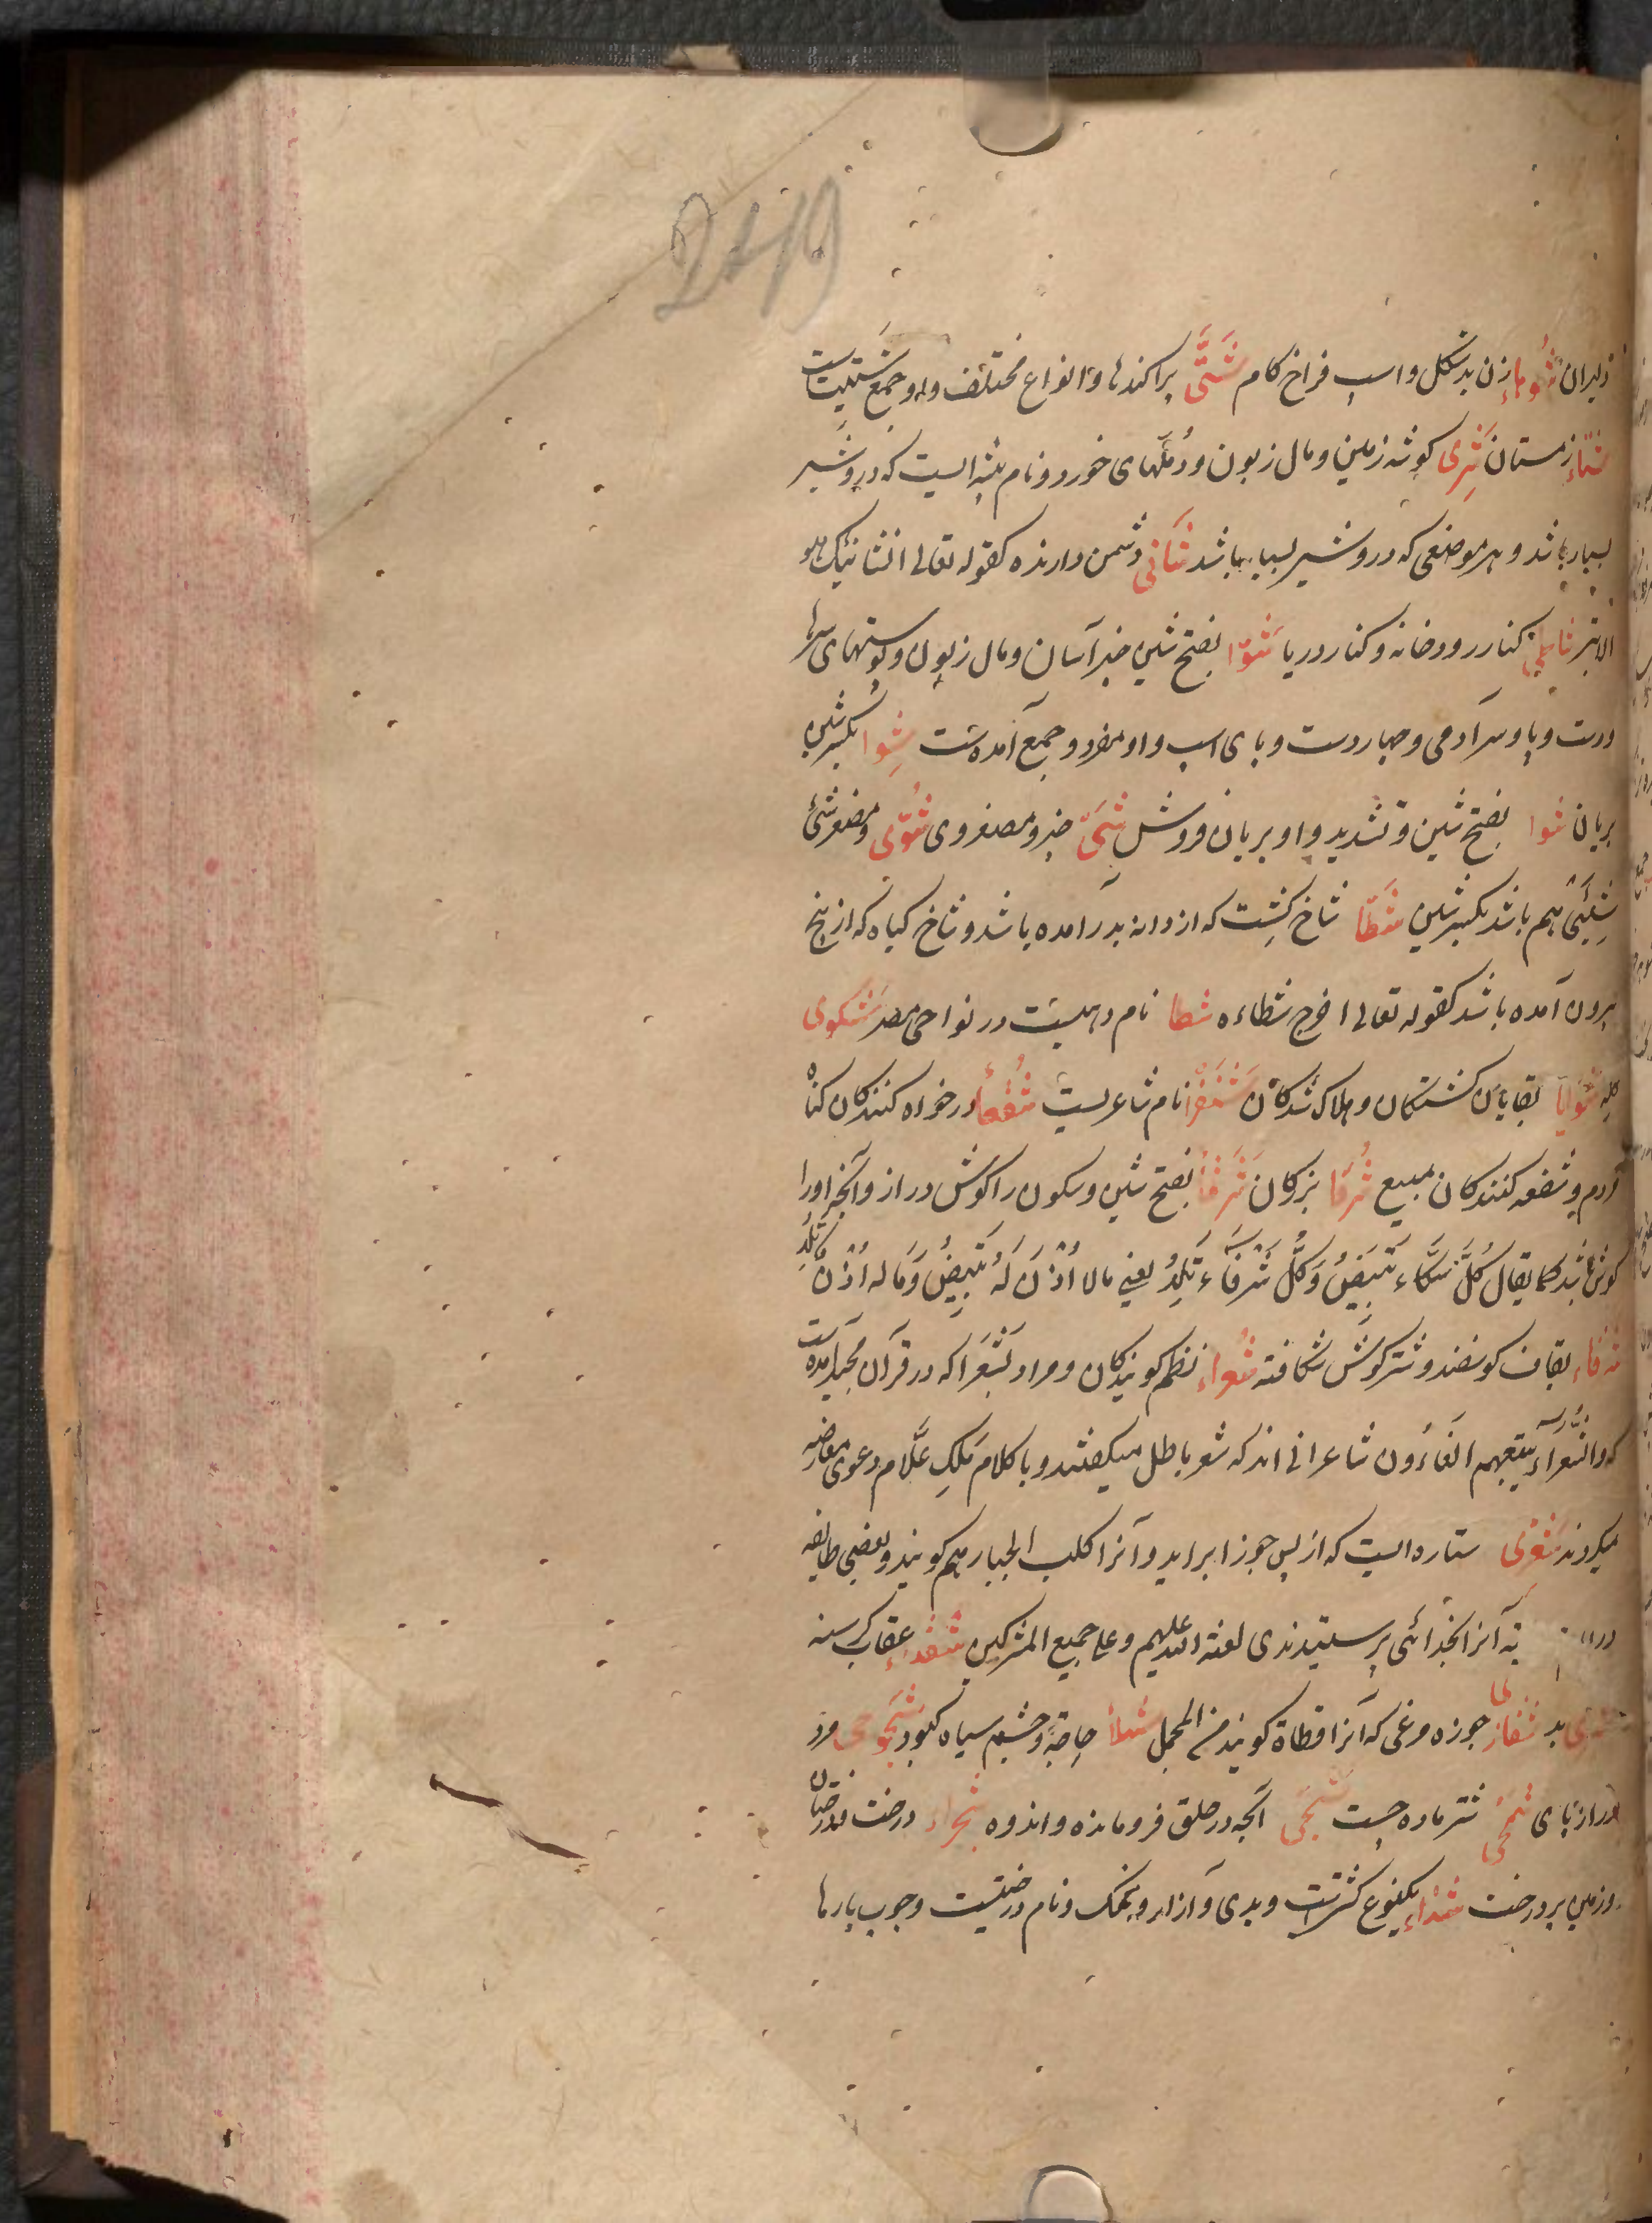 2419
دلیران شوهاء زن بدشکل و اسپ فراخ کام شَتَّی پراکندها و انواع مختلف و او جمع شتیت است
شتاء زمستان شَرِی کوشه زمین و مال زبون و دُمَّلهای خورد و نام بیشه ایست که درو شیر
بسیار باشد و هر موضعی که درو شیر بسیار باشد شَانی دشمن دارنده کقوله تعالی ان شانیک هو
الابتر شاطی کنار رودخانه و کنار دریا شَوَا بفتح شین چیز آسان و مال زبون و پوستهای سرها
و دست و پا و سر آدمی و چهار دست و پای اسپ و او مفرد و جمع آمده است شِوا بکسر شین
بریان شوا بفتح شین و تشدید واو بریان فروش شَیّ چیز و مصغر وی شُوَیّ و مصغر شئ
شِیَیئ هم باشد بکسر شین شَطَا شاخ کِشت که از دانه بدر آمده باشد و شاخ کیاه که از بیخ
بیرون آمده باشد کقوله تعالی اخرج شطاءه شطا نام دهیست در نواحی مصر شکوی
کله شَوَایَا بقایای کشتکان و هلاک شدکان شَنْفَرَا نام شاعریست شُفَعَا درخواه کنندکان کناه
مردم و شفعه کنندکان مبیع شُرَفَا بزرکان شَرْفَا بفتح شین و سکون را کوش دراز و آنچه او را
کوش باشد کما یقال کُلُّ سَکَّاء تَبِیضُ وَکُلُّ شَرْفَاء تَلِدُ یعنی ما لا اُذُنَ لَهُ تَبِیضُ وَمَا لَهُ اُذُنٌ تَلِدُ
شرقاء بقاف کوسفند و شتر کوش شکافته شُعراء نظم کویندکان و مراد بشُعَرا که در قرآن مجید آمده است
که والشُّعَراءُ یتبعهم الغاؤون شاعرانی اند که شعر باطل میکفتند و با کلام مَلِکِ عَلَّام دعوی معارضه
میکردند شعری ستاره ایست که از پس جوزا براید و آنرا کلب الجبار هم کویند و بعضی طایفه
آنرا بخدائی پرستیدندی لعنة الله علیهم و علی جمیع المشرکین شغواء عقاب کرسنه
بد جوزه مرغی که آنرا قطاة کویند من المجمل شهلا چشم سیاه کبود شَجَوجی مرد
دراز پای شتر ماده چست شَجَی آنچه در حلق فرو مانده و اندوه شجراء درخت و درختان
و زمین پر درخت شَذاء یکنوع کشتیست و بدی و آزار و نمک و نام درختیست و چوب پارها